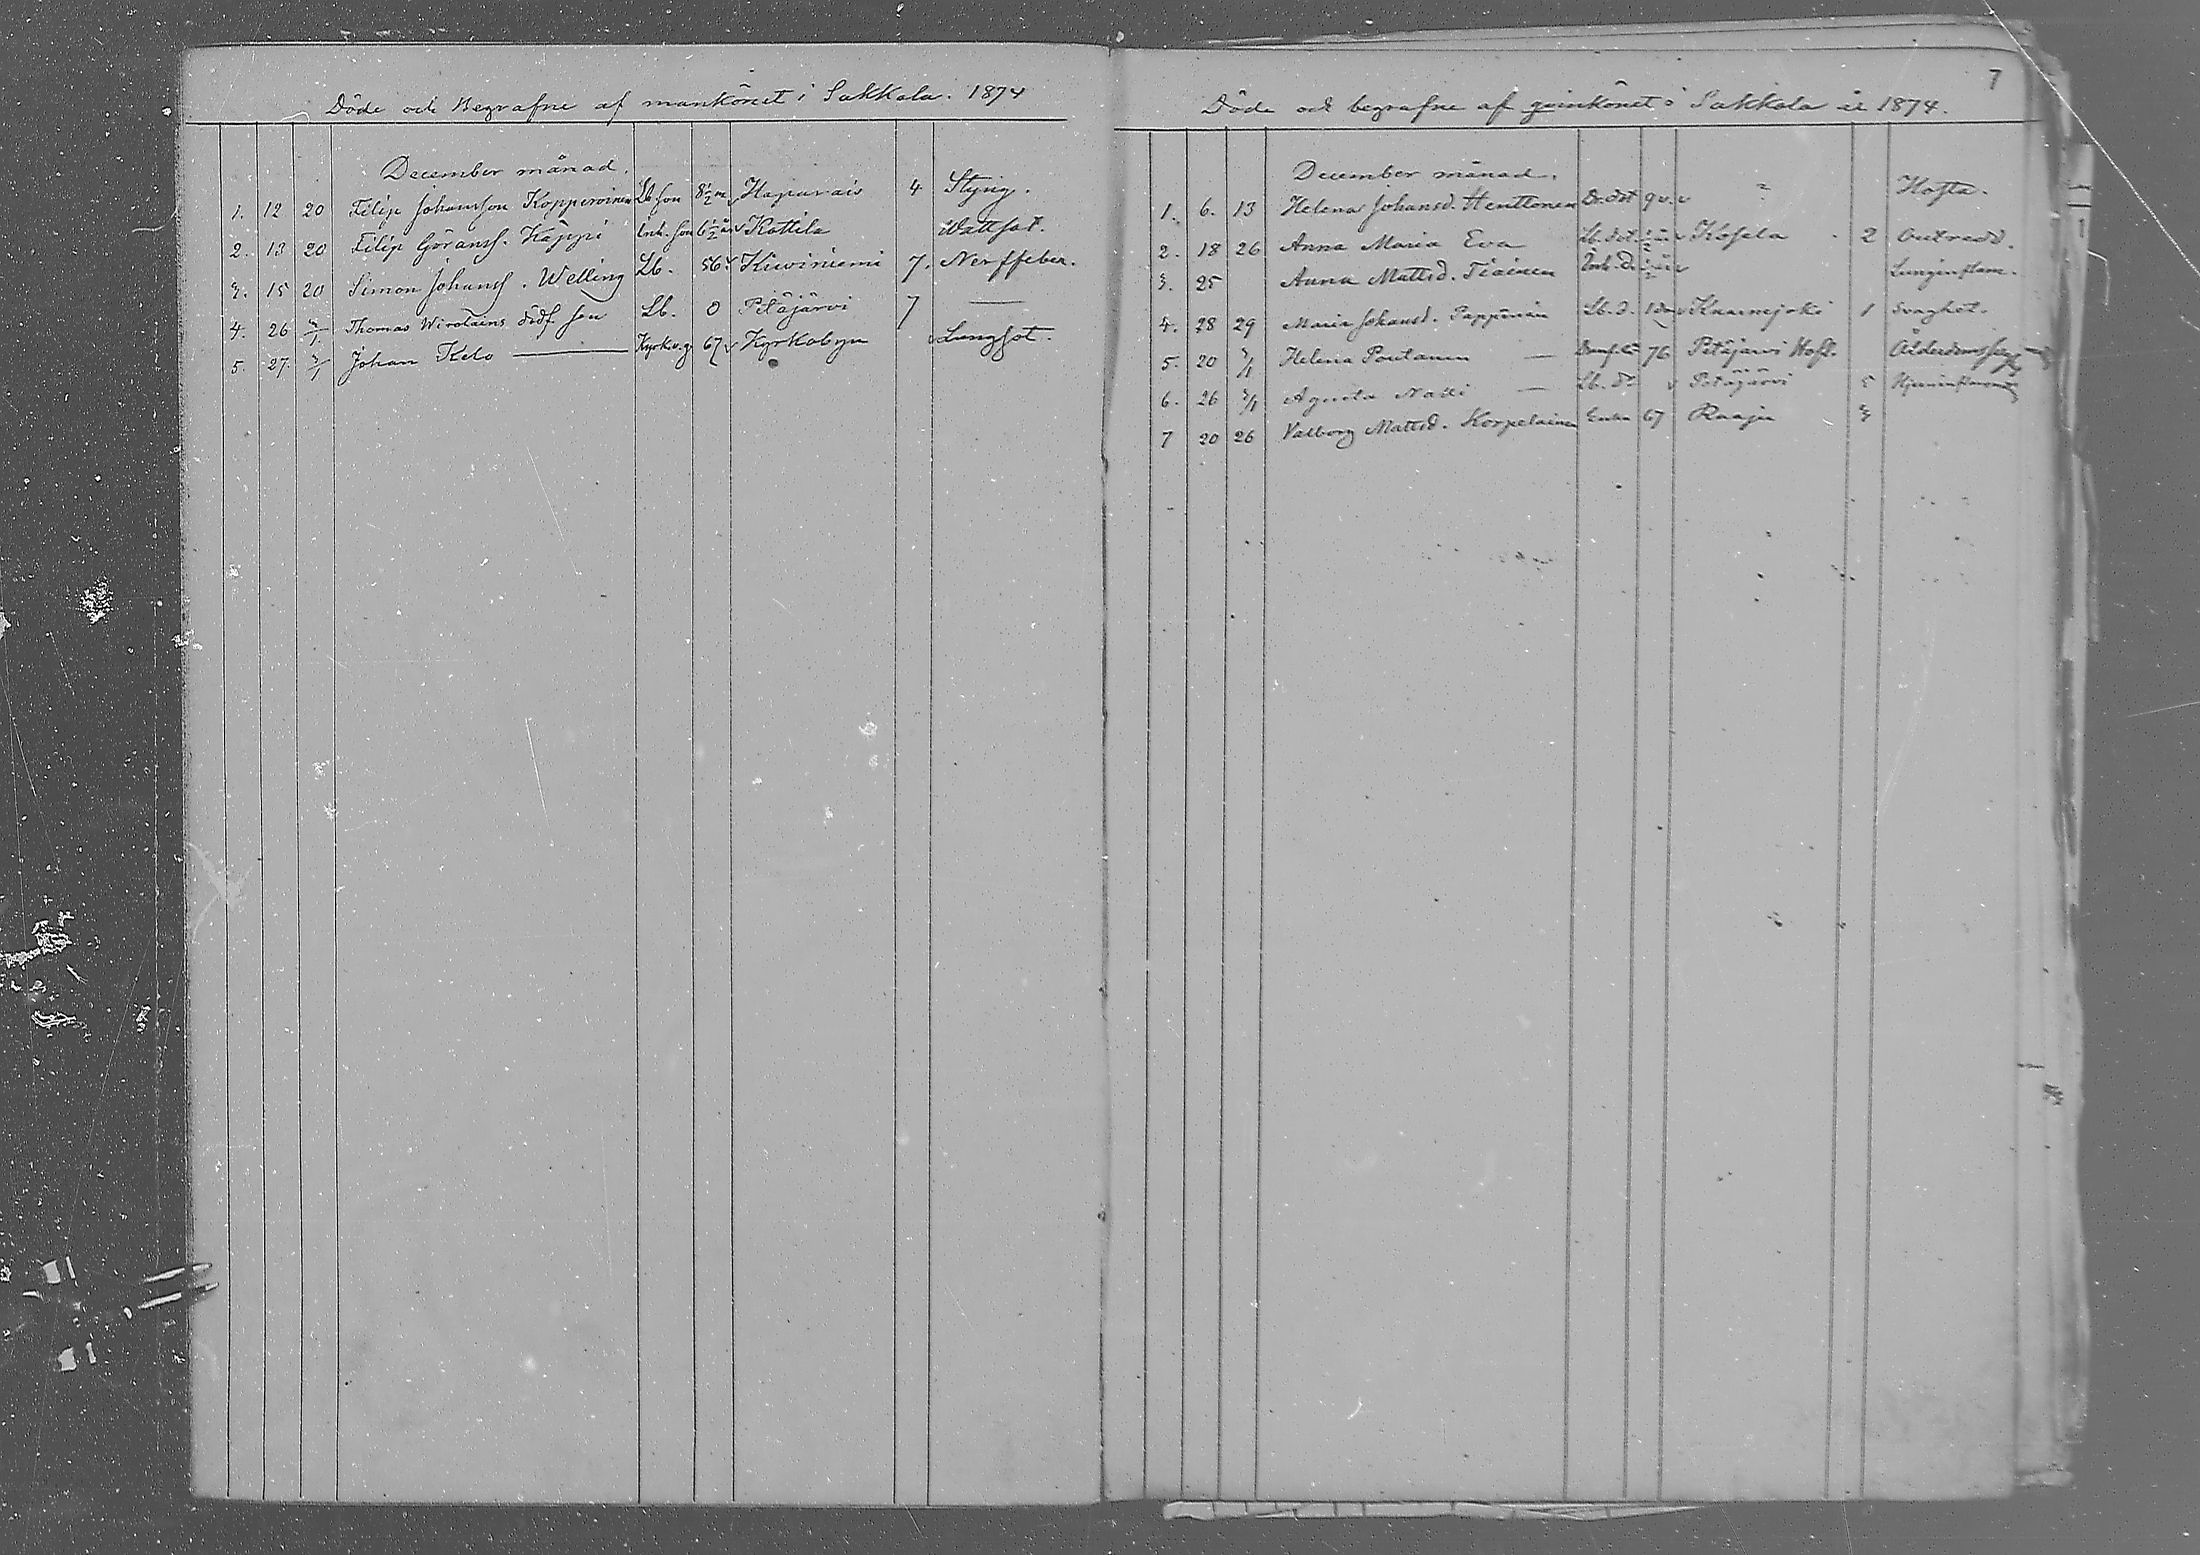 Döde och Begrafne af mankönet i Sakkola. 1874
December månad.
1. 12 20 Filip Johansson Kopperoinen Lb son 8½ m Haparais 4 Styng.
2. 13 20 Filip Göranss. Käppi Inh. son 6½ år Kottila Wattsot.
3. 15 20 Simon Johanss. Welling Lb. 56 Kiwiniemi 7. Nerffeber.
4. 26 3/1 Thomas Wirolains dödf. son Lb. 0 Petäjärvi 7 —
5. 27. 3/1 Johan Kelo — Kyrkv.g 67 Kyrkobyn Lungsot.
7
Döde och begrafne af qvinkönet i Sakkola år 1874.
December månad.
1. 6. 13 Helena Johansd. Henttonen Dr. dot 9 v. " Hosta.
2. 18 26 Anna Maria Eva Lb. dot. ½ år Kösela 2
3. 25 Anna Mattsd. Tiainen Inh. D. ½ år Lunginflam.
4. 28 29 Maria Johansd. Pappinen Lb. d. 1 Knaarnejoki 1 Svaghet.
5. 20 3/1 Helena Poutanen — 76 Petäjärvi Hof.
6. 26 3/1 Agneta Naski — Lb. Petäjärvi 5
7 20 26 Valborg Mattsd. Korpelainen Enka 67 Raaju 3